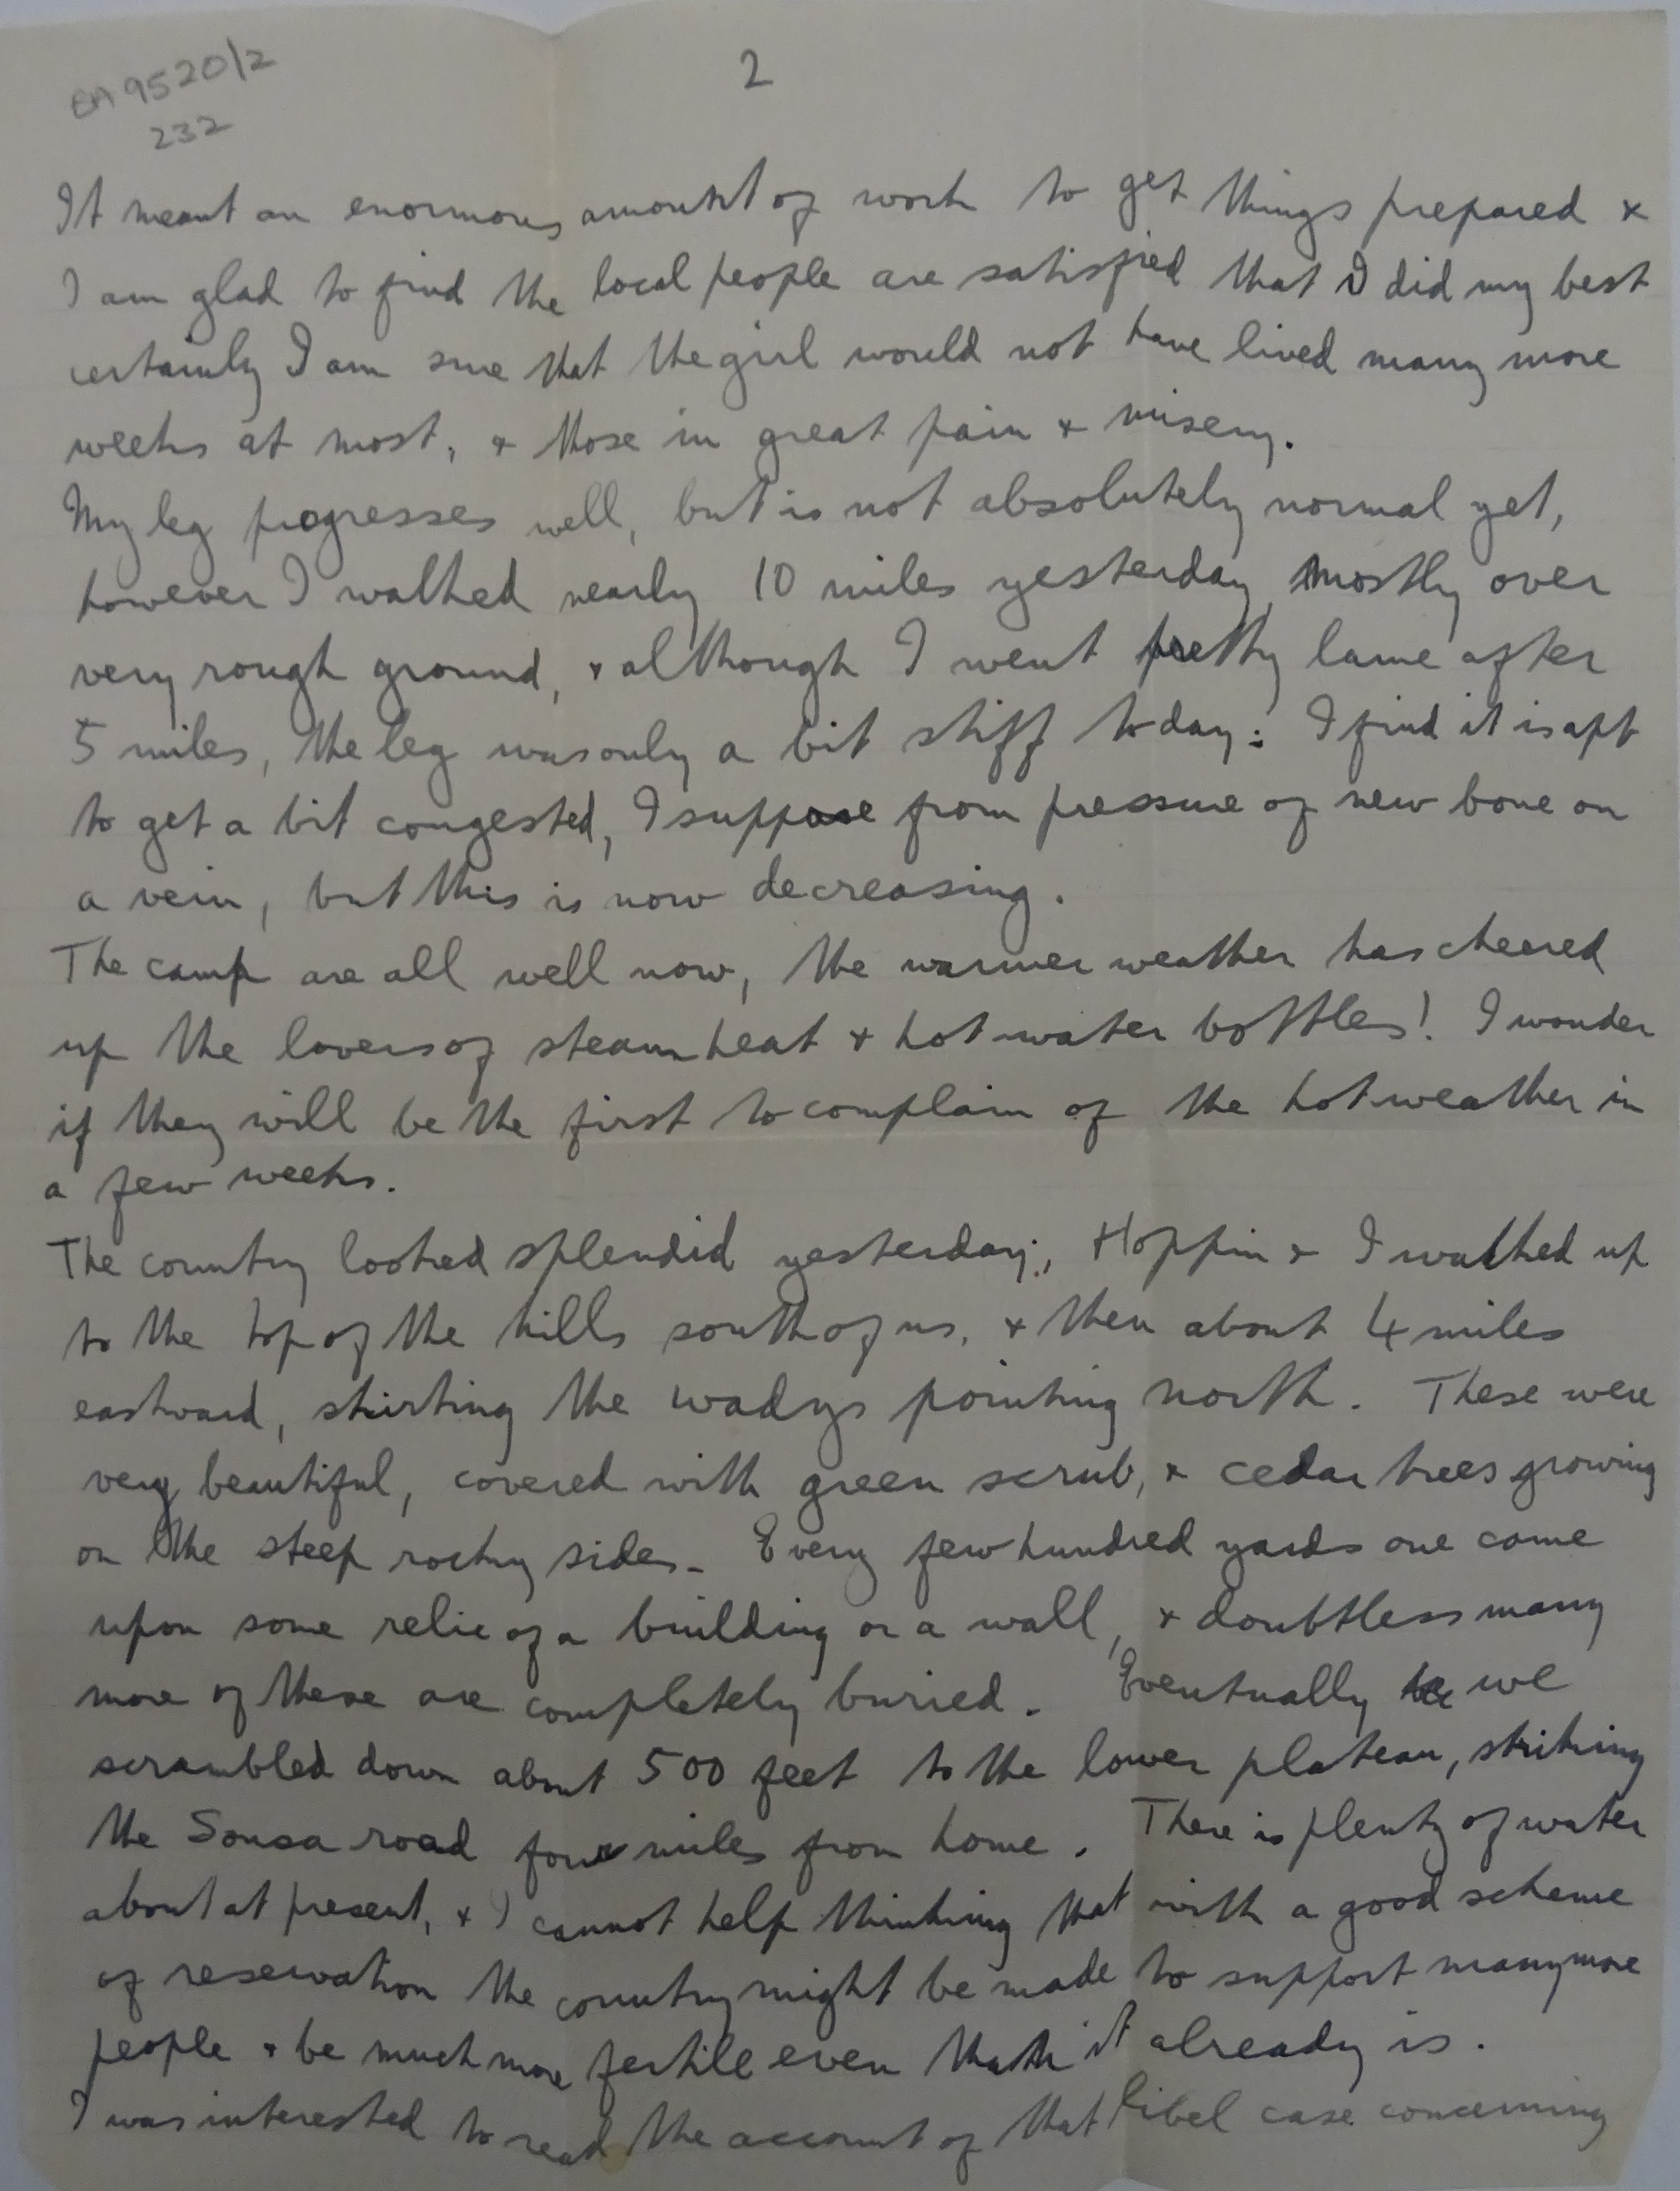 EA 9520/2
232
2
It meant an enormous amount of work to get things prepared &
I am glad to find the local people are satisfied that I did my best
certainly I am sure that the girl would not have lived many more
weeks at most, & those in great pain & misery.
My leg progresses well, but is not absolutely normal yet,
however I walked nearly 10 miles yesterday, mostly over
very rough ground, & although I went pretty lame after
5 miles, the leg was only a bit stiff today: I find it is apt
to get a bit congested, I suppose from pressure of new bone on
a vein, but this is now decreasing.
The camp are all well now, the warmer weather has cheered
up the lovers of steam heat & hot water bottles! I wonder
if they will be the first to complain of the hot weather in
a few weeks.
The country looked splendid yesterday; Hoppin & I walked up
to the top of the hills south of us, & then about 4 miles
eastward, skirting the wadys pointing north. These were
very beautiful, covered with green scrub, & cedar trees growing
on the steep rocky sides - Every few hundred yards one came
upon some relic of a building or a wall, & doubtless many
more of these are completely buried. Eventually we
scrambled down about 500 feet to the lower plateau, striking
the Sousa road four miles from home. There is plenty of water
about at present, & I cannot help thinking that with a good scheme
of reservation the country might be made to support many more
people & be much more fertile even than it already is.
I was interested to read the account of that libel case concerning